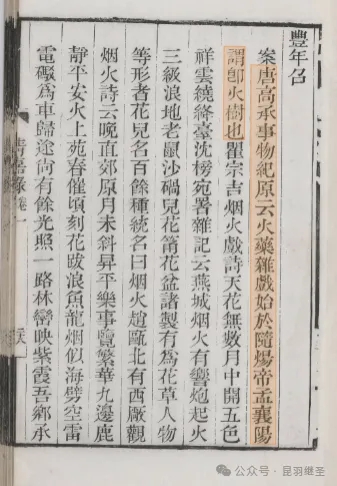 豐年召
案唐高承事物紀原云火藥雜戲始於隨煬帝孟襄陽
謂卽火樹也瞿宗吉烟火戲詩天花無數月中開五色
祥雲繞絳臺沈榜宛署雜記云燕城烟火有響炮起火
三級浪地老鼠沙碢兒花筩花盆諸製有爲花草人物
等形者花兒名百餘種統名曰烟火趙甌北有西厰觀
烟火詩云晚直郊原月未斜昇平樂事覽繁華九邊鹿
靜平安火上苑春催頃刻花跋浪魚龍烟似海劈空雷
電礮爲車歸途尙有餘光照一路林巒映紫霞吾鄉承
淸嘉錄 卷一
公众号·昆羽继圣